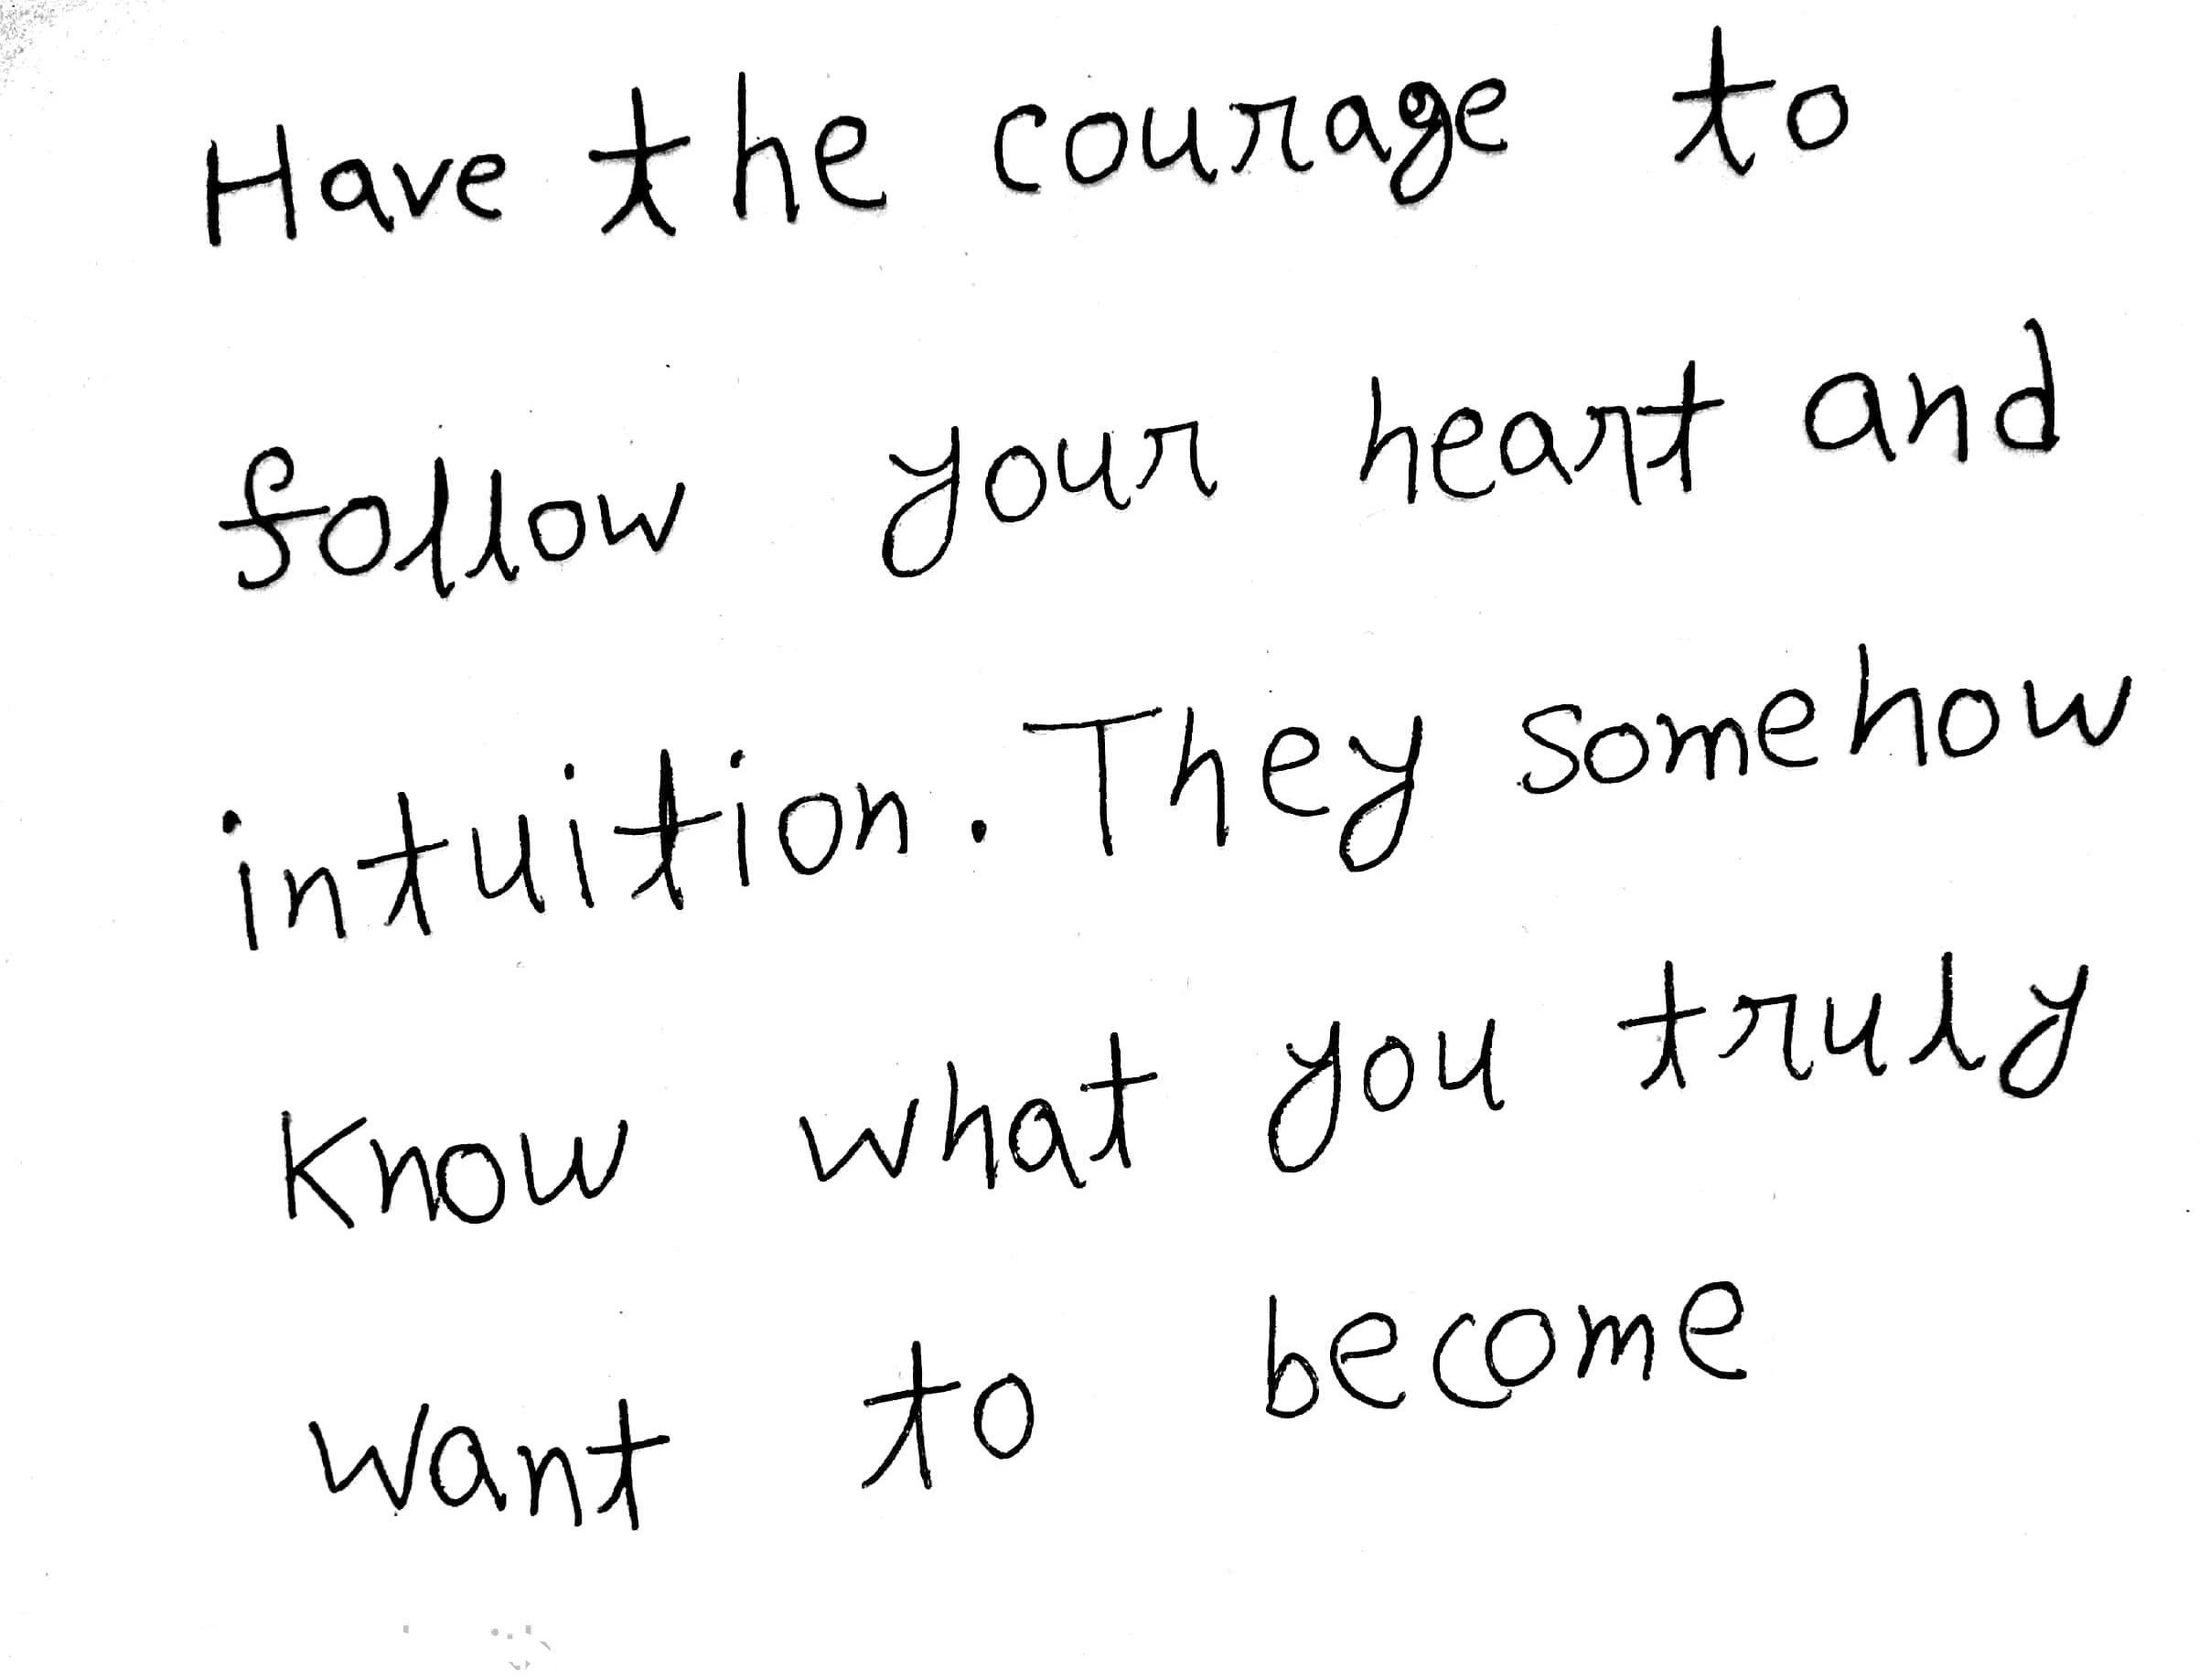 Have the courage to
follow your heart and
intuition. They somehow
know what you truly
want to become